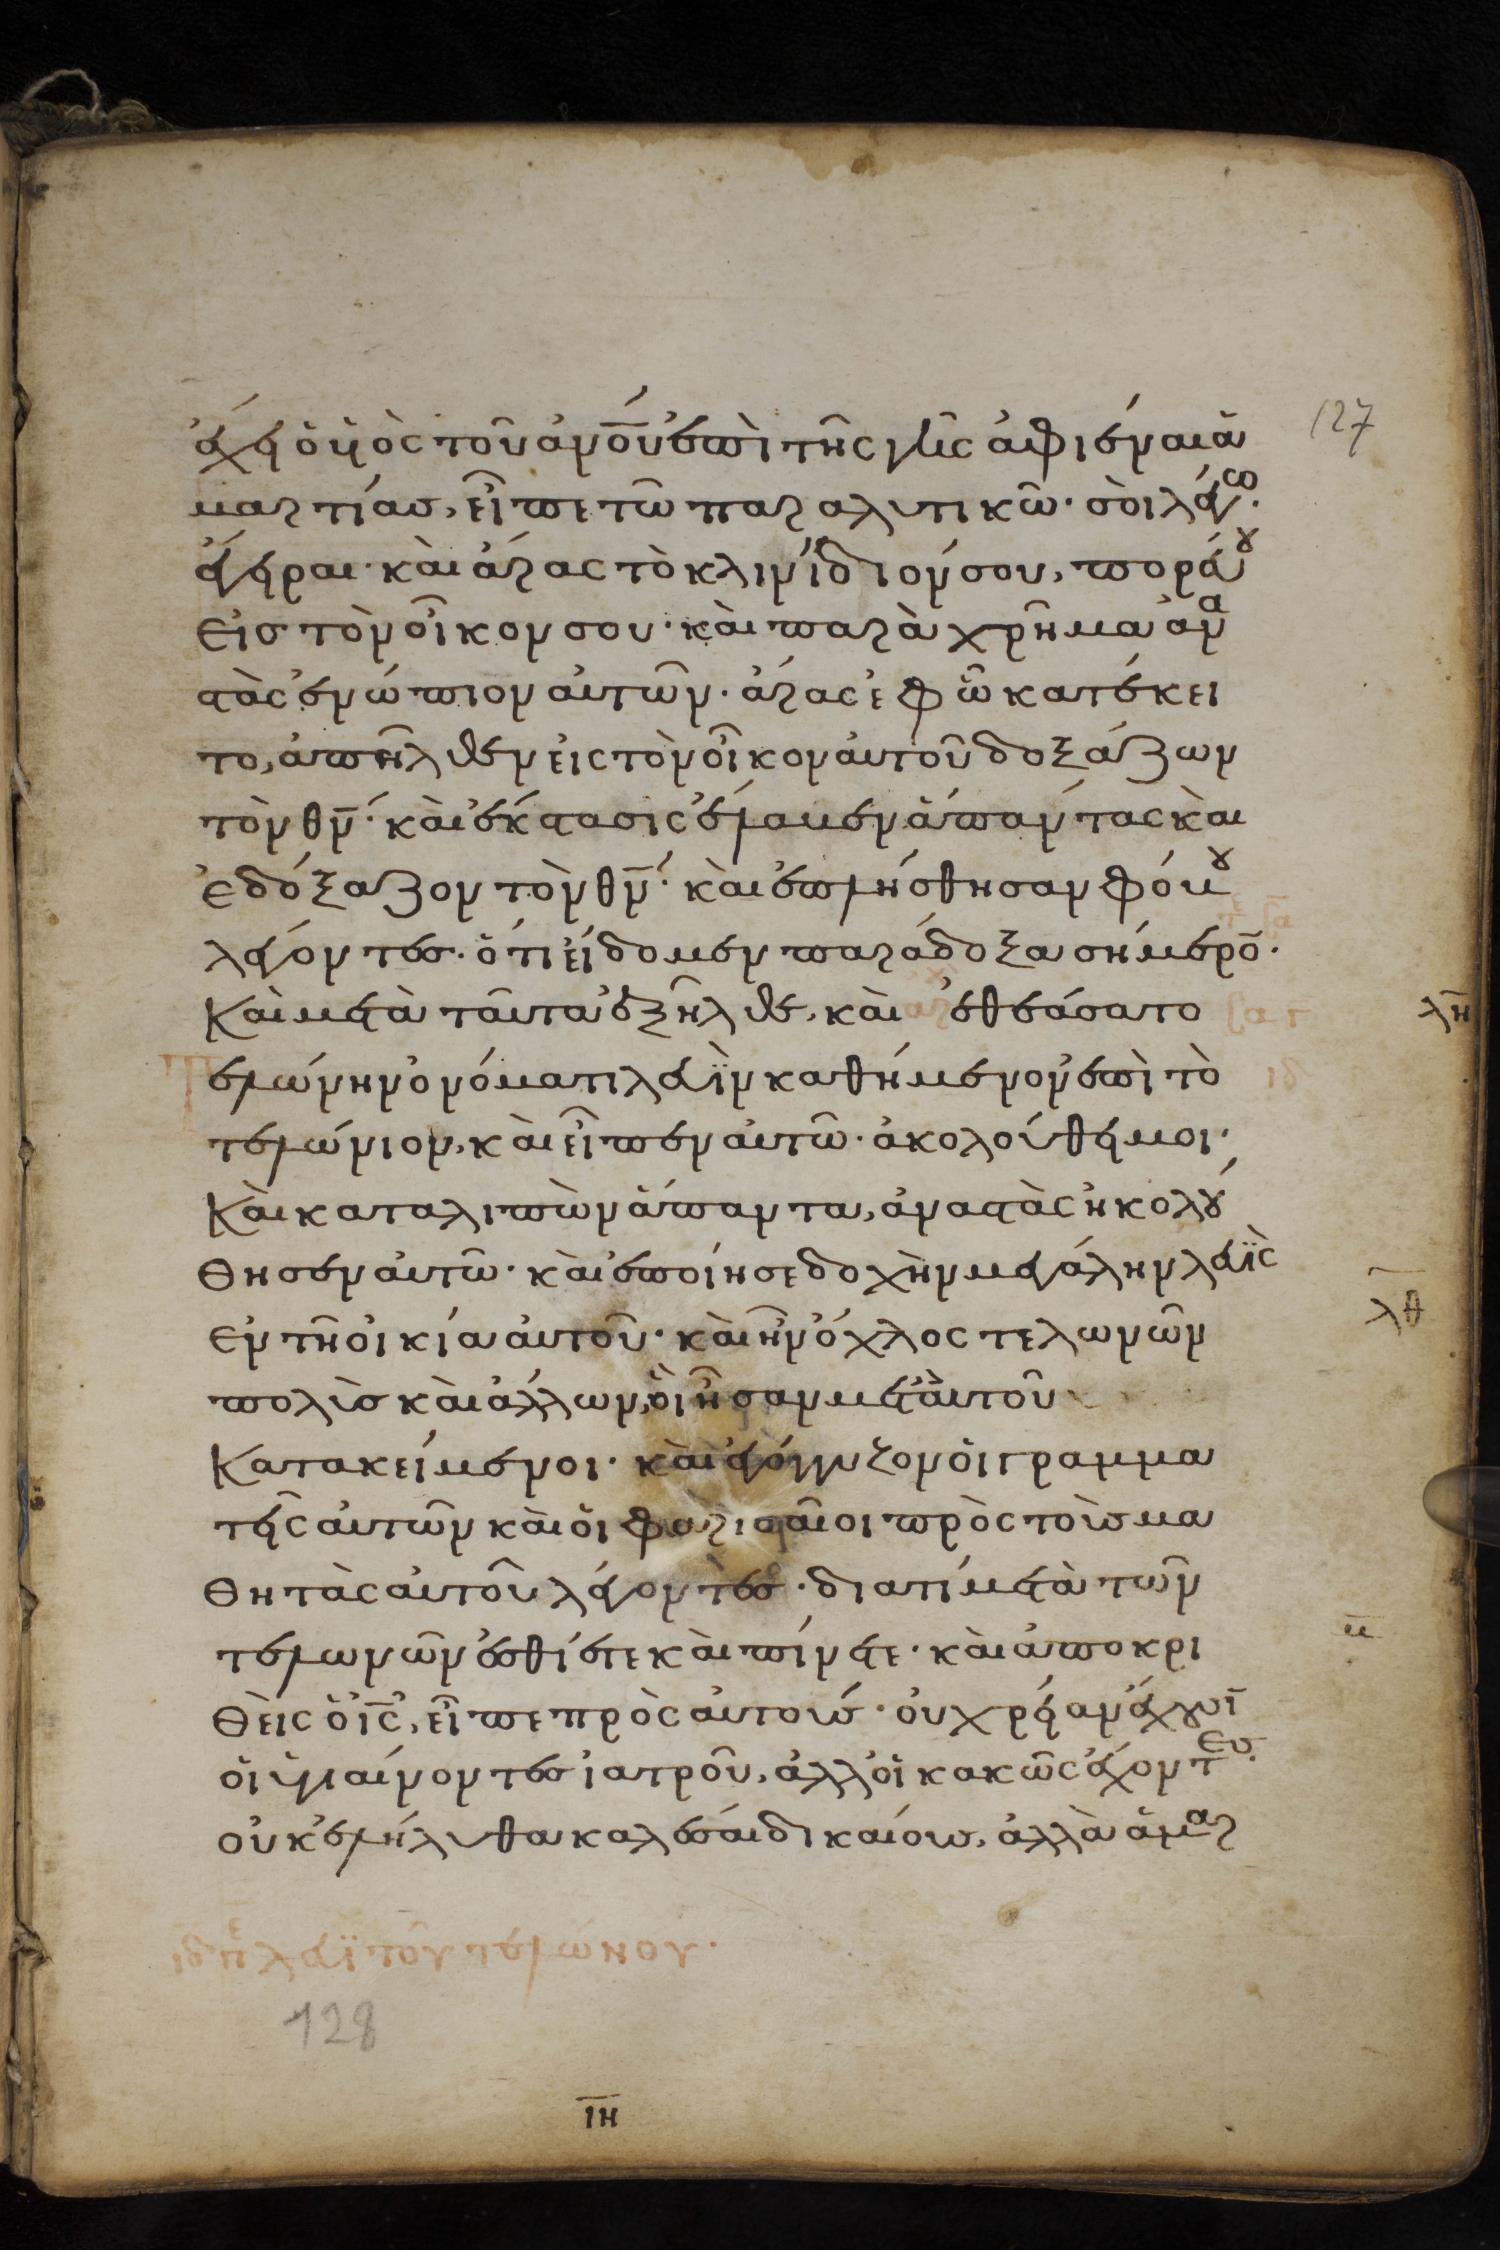 127
ἔχει ὁ υἱὸς τοῦ ἀνου ἐπὶ τῆς γῆς ἀφιέναι ἁ
μαρτίας, εἶπε τῶ παραλυτικῶ· σοὶ λέγω·
ἔγειραι· καὶ ἄρας τὸ κλινίδιόν σου, πορεύου
εἰς τὸν οἶκον σου· καὶ παραχρῆμα ἀνα
στὰς ἐνώπιον αὐτῶν· ἄρας ἐφ ὧ κατέκει
το, ἀπῆλθεν εἰς τὸν οἶκον αὐτοῦ δοξάζων
τὸν θν· καὶ ἔκστασις ἔλαβεν ἅπαντας καὶ
ἐδόξαζον τὸν θν· καὶ ἐπλήσθησαν φόβου
λέγοντες· ὅτι εἴδομεν παράδοξα σήμερο·
Καὶ μετὰ ταῦτα ἐξῆλθε, καὶ ἐθεάσατο
λη
τελώνην ὀνόματι λευῒν καθήμενον ἐπὶ τὸ
τελώνιον, καὶ εἶπεν αὐτῶ· ἀκολούθει μοι·
Καὶ καταλιπὼν ἅπαντα, ἀναστὰς ἠκολού
θησεν αὐτῶ· καὶ ἐποίησε δοχὴν μεγάλην λευῒς
λθ
ἐν τῆ οἰκία αὐτοῦ· καὶ ἦν ὄχλος τελωνῶν
πολὺς καὶ ἄλλων, οἳ ἦσαν μετ αὐτοῦ
Κατακείμενοι· καὶ ἐγόγγυζον οἱ γραμμα
τεῖς αὐτῶν καὶ οἱ φαρισαῖοι πρὸς τοὺς μα
θητὰς αὐτοῦ λέγοντες· διατί μετὰ τῶν
τελωνῶν ἐσθίετε καὶ πίνετε· καὶ ἀποκρι
μ
θεὶς ὁ ις, εἶπε πρὸς αὐτούς· οὐ χρείαν ἔχουσι
οἱ ὑγιαίνοντες ἰατροῦ, ἀλλ οἱ κακῶς ἔχοντες·
οὐκ ἐλήλυθα καλέσαι δικαίους, ἀλλὰ ἁμαρ
ιδ πε λευῒ τοῦ τελώνου·
128
ιη